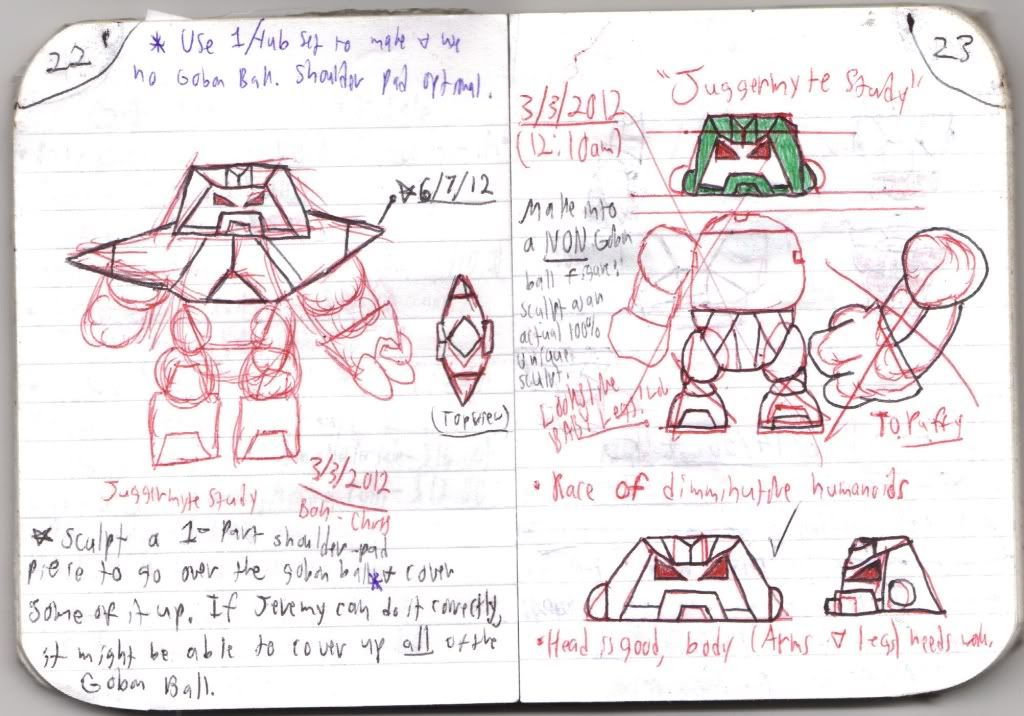 22
* Use 1/4ub set to make & use
no Gobon Ball. Shoulder pad optional.
6/7/12
(Topview)
Juggermyte Study
3/3/2012
Bah-Chris
* Sculpt a 1-Part shoulder-pad
piece to go over the gobon ball* & cover
some of it up. If Jeremy can do it correctly,
it might be able to cover up all of the
Gobon Ball.
23
"Juggermyte Study"
3/3/2012
(12:10am)
Make into
a NON Gobon
ball figure!
sculpt as an
actual 100%
unique
sculpt.
Looks like
BABY Legs!
To Puffy
• Race of dimminutive humanoids
• Head is good, body (Arms & legs) needs work.